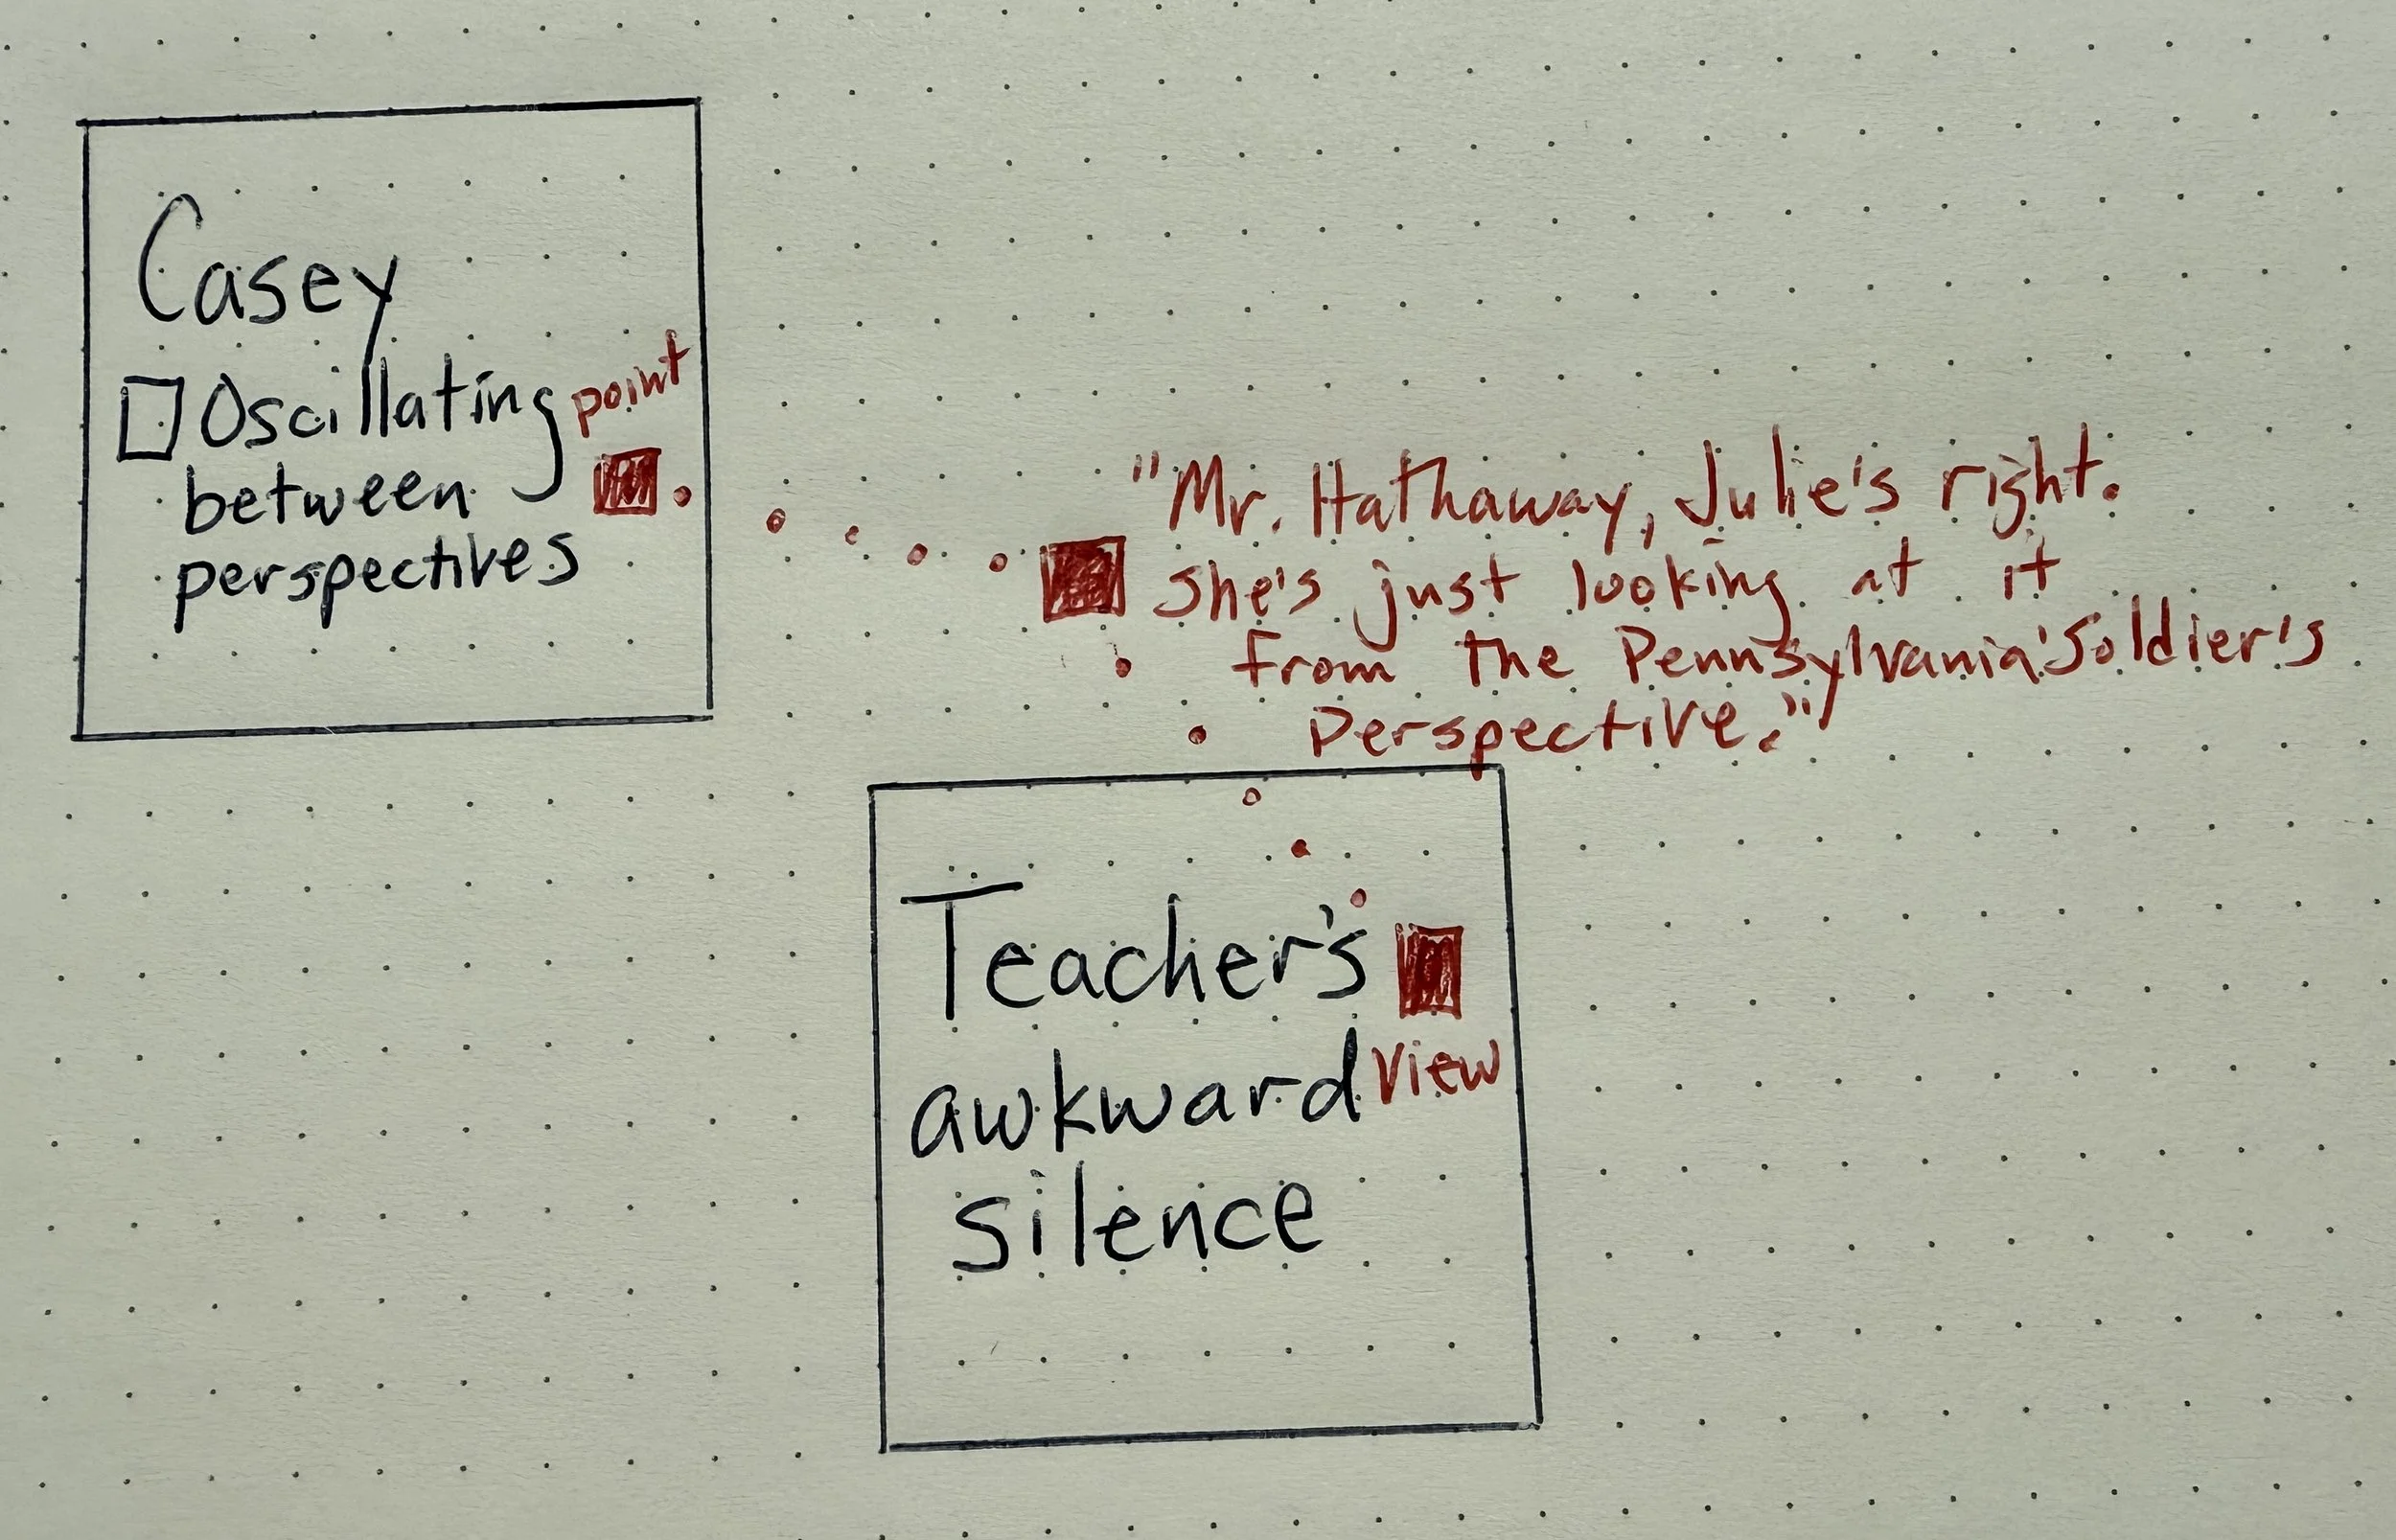 Casey
Oscillating
between
perspectives
point
"Mr. Hathaway, Julie's right.
She's just looking at it
from the Pennsylvania Soldier's
Perspective."
Teacher's
awkward
silence
View